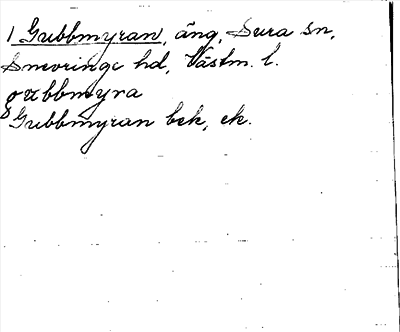 1 Gubbmyran, äng, Sura sn,
Snevringe hd, Västm. l.
gubbmyra
Gubbmyran bek, ek.